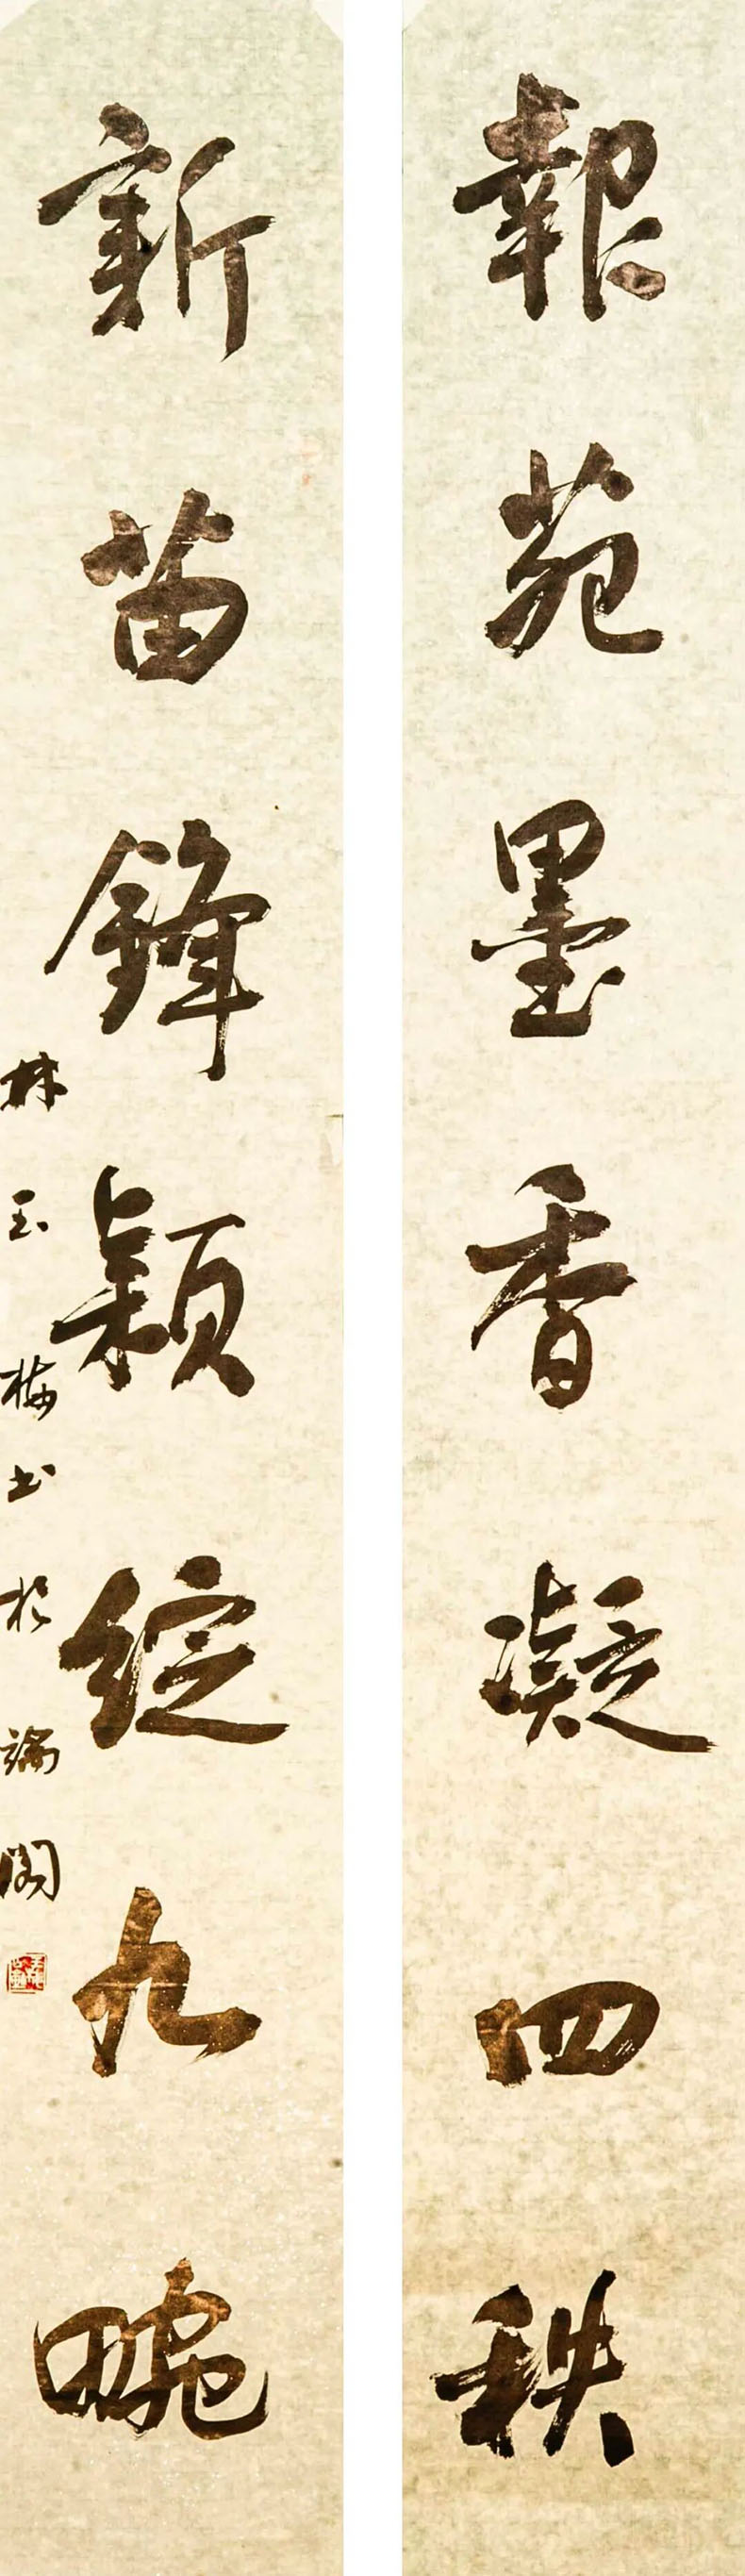 報苑墨香凝四秩
新苗鋒穎綻九畹
林玉梅书於端阁